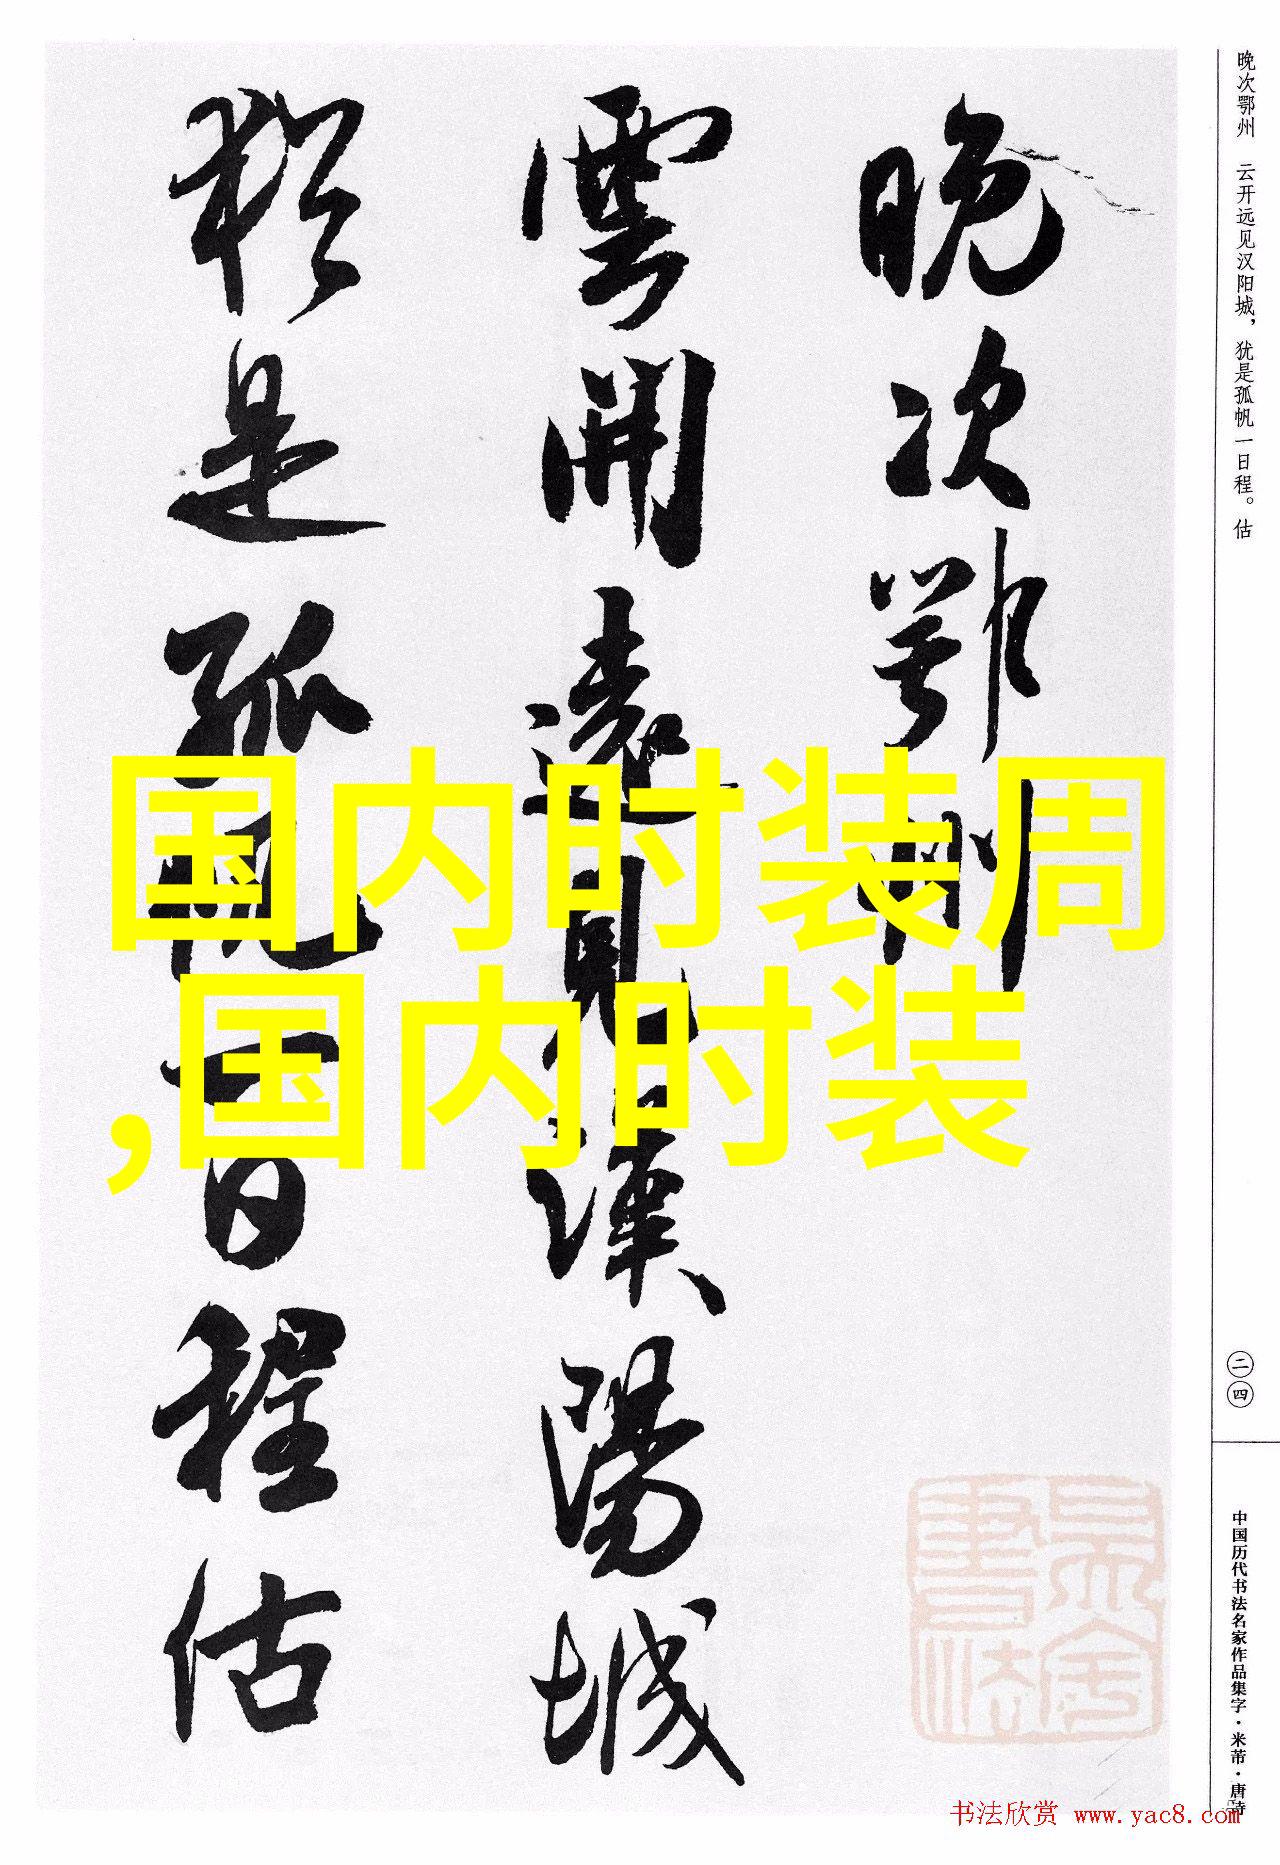 晚次鄂州
雲開遠見漢陽城
猶是孤帆一日程估
国内时装周
,国内时装
晚次鄂州 云开远见汉阳城，犹是孤帆一日程。估
二四
中国历代书法名家作品集字·米芾·唐诗
书法欣赏 www.yac8.com